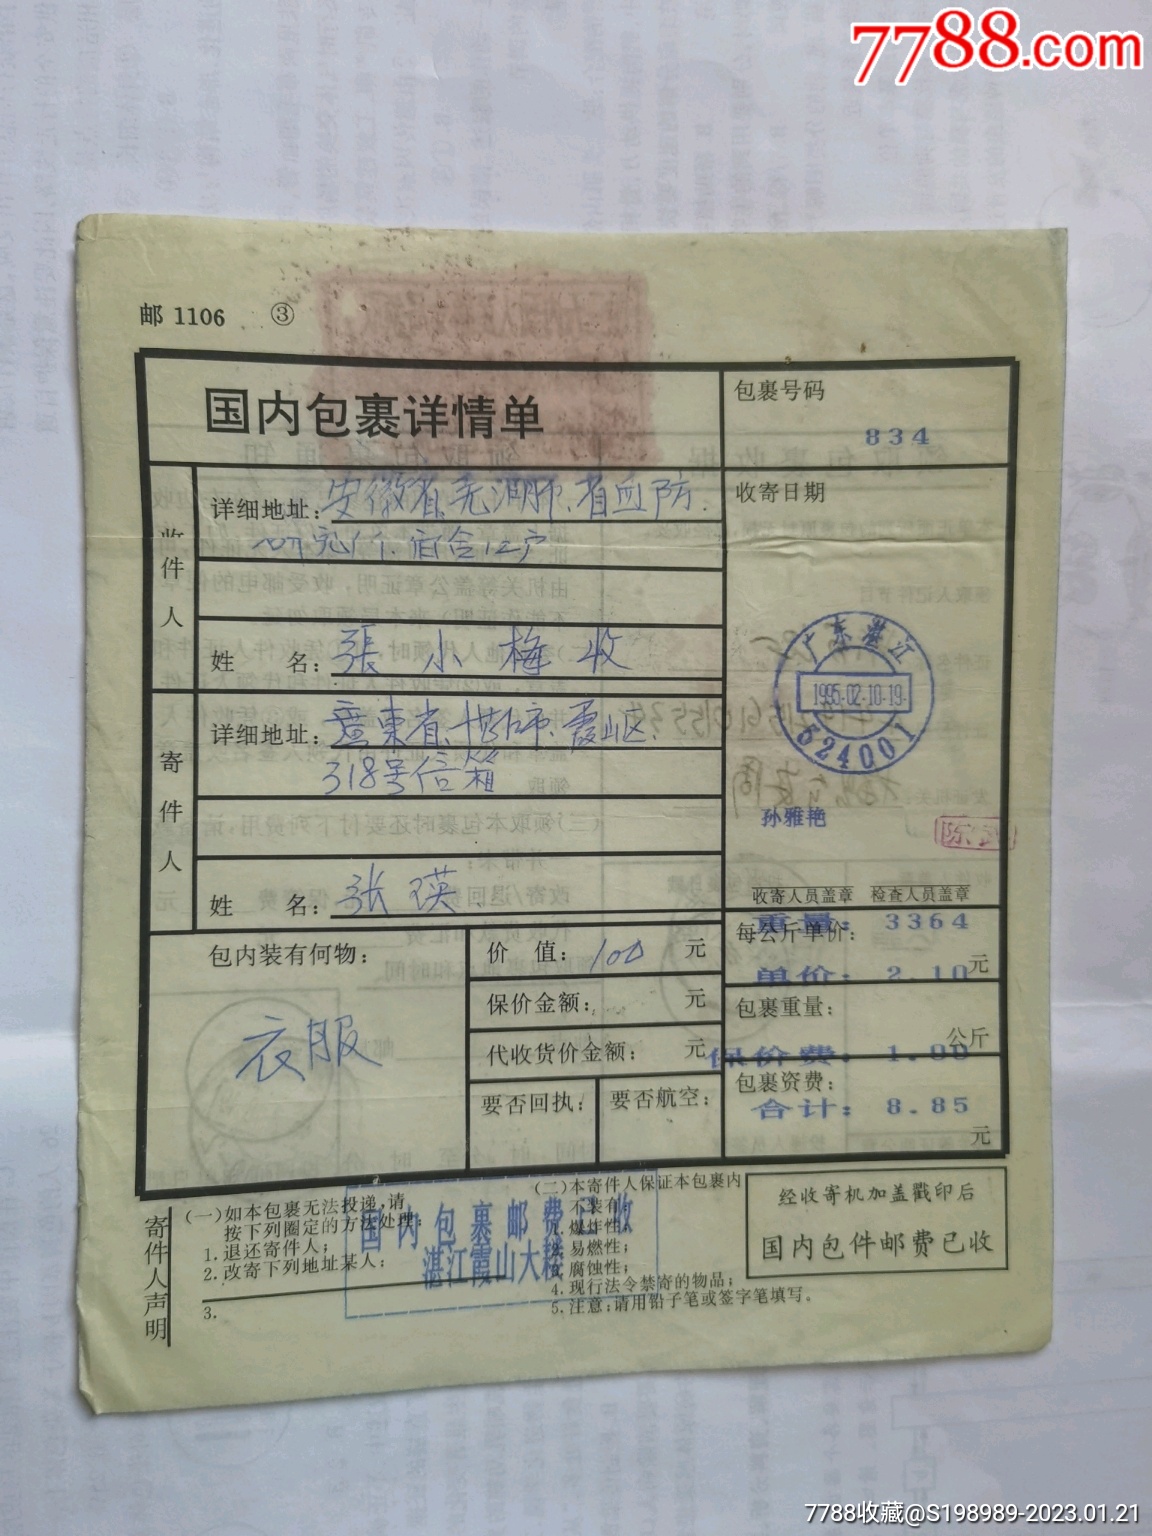 7788.com
邮 1106 ③
国内包裹详情单
包裹号码
834
收件人
详细地址:安徽省芜湖市.省血防.
研究所.宿舍12户
姓 名:張小梅收
收寄日期
广东湛江
1995.02.10.19
524001
寄件人
详细地址:廣東省.湛江市.霞山区.
318号信箱
姓 名:张瑛
孙雅艳
收寄人员盖章 检查人员盖章
包内装有何物:
衣服
价 值:100 元
保价金额: 元
代收货价金额: 元
要否回执: 要否航空:
重量: 3364
每公斤单价: 元
单价: 2.10
包裹重量: 公斤
保价费: 1.00
包裹资费: 元
合计: 8.85
寄件人声明
(一)如本包裹无法投递,请
按下列圈定的方法处理:
1.退还寄件人;
2.改寄下列地址某人:
3.
(二)本寄件人保证本包裹内
不装有:
1.爆炸性;
2.易燃性;
3.腐蚀性;
4.现行法令禁寄的物品;
5.注意:请用铅子笔或签字笔填写。
国内包裹邮费已收
湛江霞山大楼
经收寄机加盖戳印后
国内包件邮费已收
7788收藏@S198989-2023.01.21